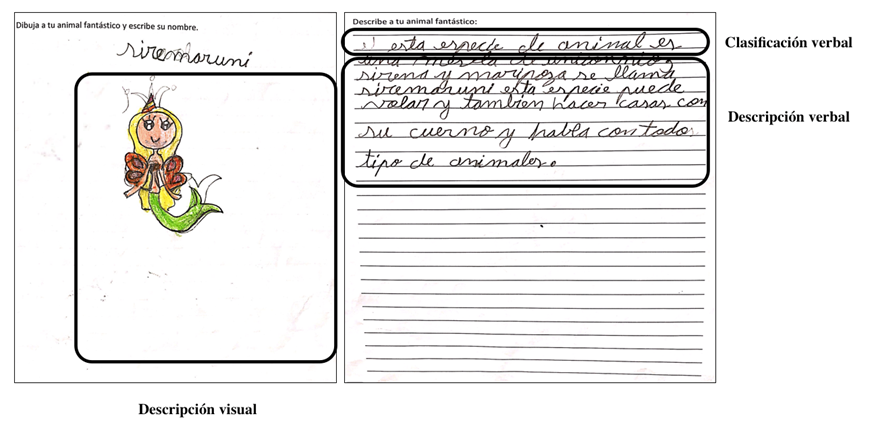 Dibuja a tu animal fantástico y escribe su nombre.
siremaruni
Describe a tu animal fantástico:
esta especie de animal es
una mescla de unicornio
sirena y mariposa se llama
siremaruni esta especie puede
volar y tambien hacer casas con
su cuerno y habla con todo
tipo de animales.
Clasificación verbal
Descripción verbal
Descripción visual